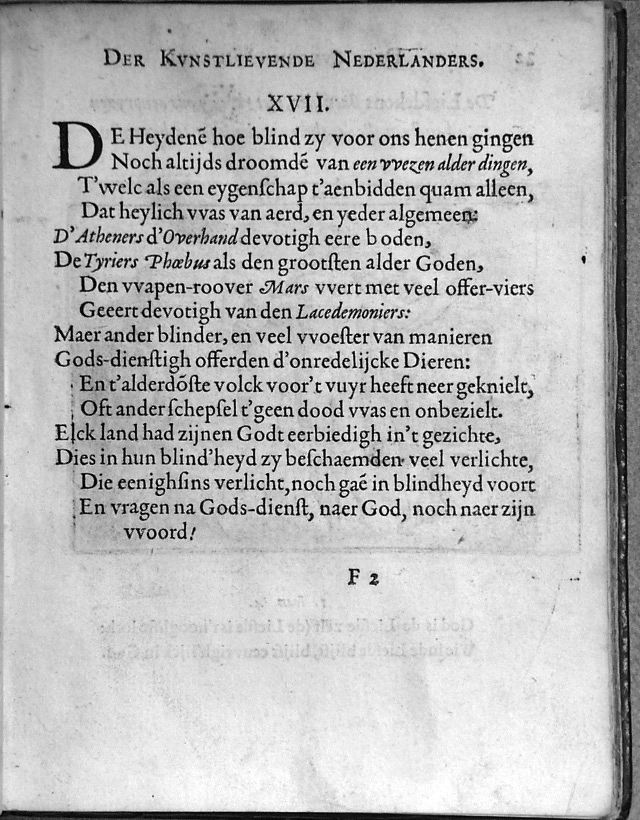 DER KVNSTLIEVENDE NEDERLANDERS.
XVII.
DE Heydenē hoe blind zy voor ons henen gingen
Noch altijds droomdē van een vvezen alder dingen,
T'welc als een eygenſchap t'aenbidden quam alleen,
Dat heylich vvas van aerd, en yeder algemeen:
D'Atheners d'Overhand devotigh eere boden,
De Tyriers Phœbus als den grootſten alder Goden,
Den vvapen-roover Mars vvert met veel offer-viers
Geeert devotigh van den Lacedemoniers:
Maer ander blinder, en veel vvoeſter van manieren
Gods-dienſtigh offerden d'onredelijcke Dieren:
En t'alderdõſte volck voor't vuyr heeft neer geknielt,
Oft ander ſchepſel t'geen dood vvas en onbezielt.
Elck land had zijnen Godt eerbiedigh in't gezichte,
Dies in hun blind'heyd zy beſchaemden veel verlichte,
Die eenighſins verlicht, noch gaē in blindheyd voort
En vragen na Gods-dienſt, naer God, noch naer zijn
vvoord!
F 2